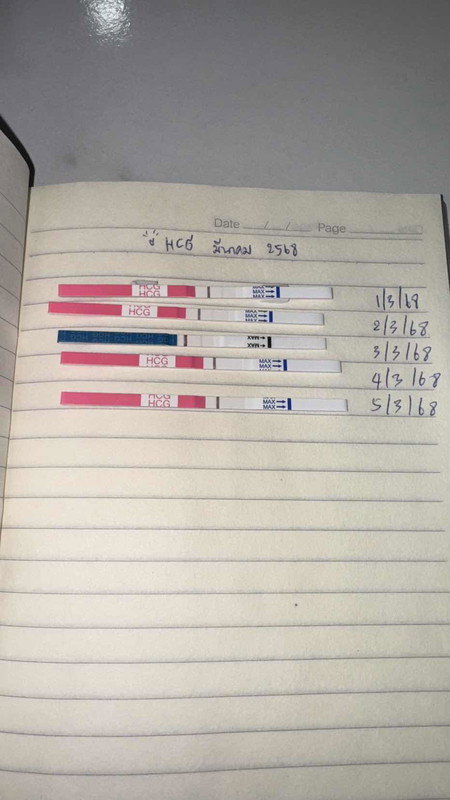 Date / / Page
HCG มีนาคม 2568
HCG HCG MAX MAX 1/3/68
HCG MAX MAX 2/3/68
MAX MAX 3/3/68
HCG MAX MAX 4/3/68
HCG HCG MAX MAX 5/3/68